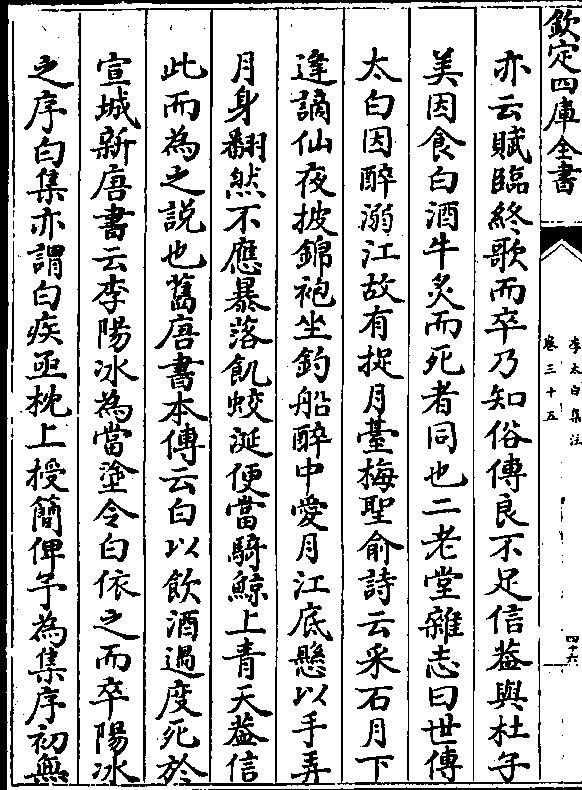 欽定四庫全書
李太白集注
卷三十五
四十六
亦云賦臨終歌而卒乃知俗傳良不足信葢與杜子
美因食白酒牛炙而死者同也二老堂雜志曰世傳
太白因醉溺江故有捉月臺梅聖俞詩云采石月下
逢謫仙夜披錦袍坐釣船醉中愛月江底懸以手弄
月身翻然不應暴落飢蛟涎便當騎鯨上青天葢信
此而為之說也舊唐書本傳云白以飲酒過度死於
宣城新唐書云李陽冰為當塗令白依之而卒陽冰
之序白集亦謂白疾亟枕上授簡俾予為集序初無